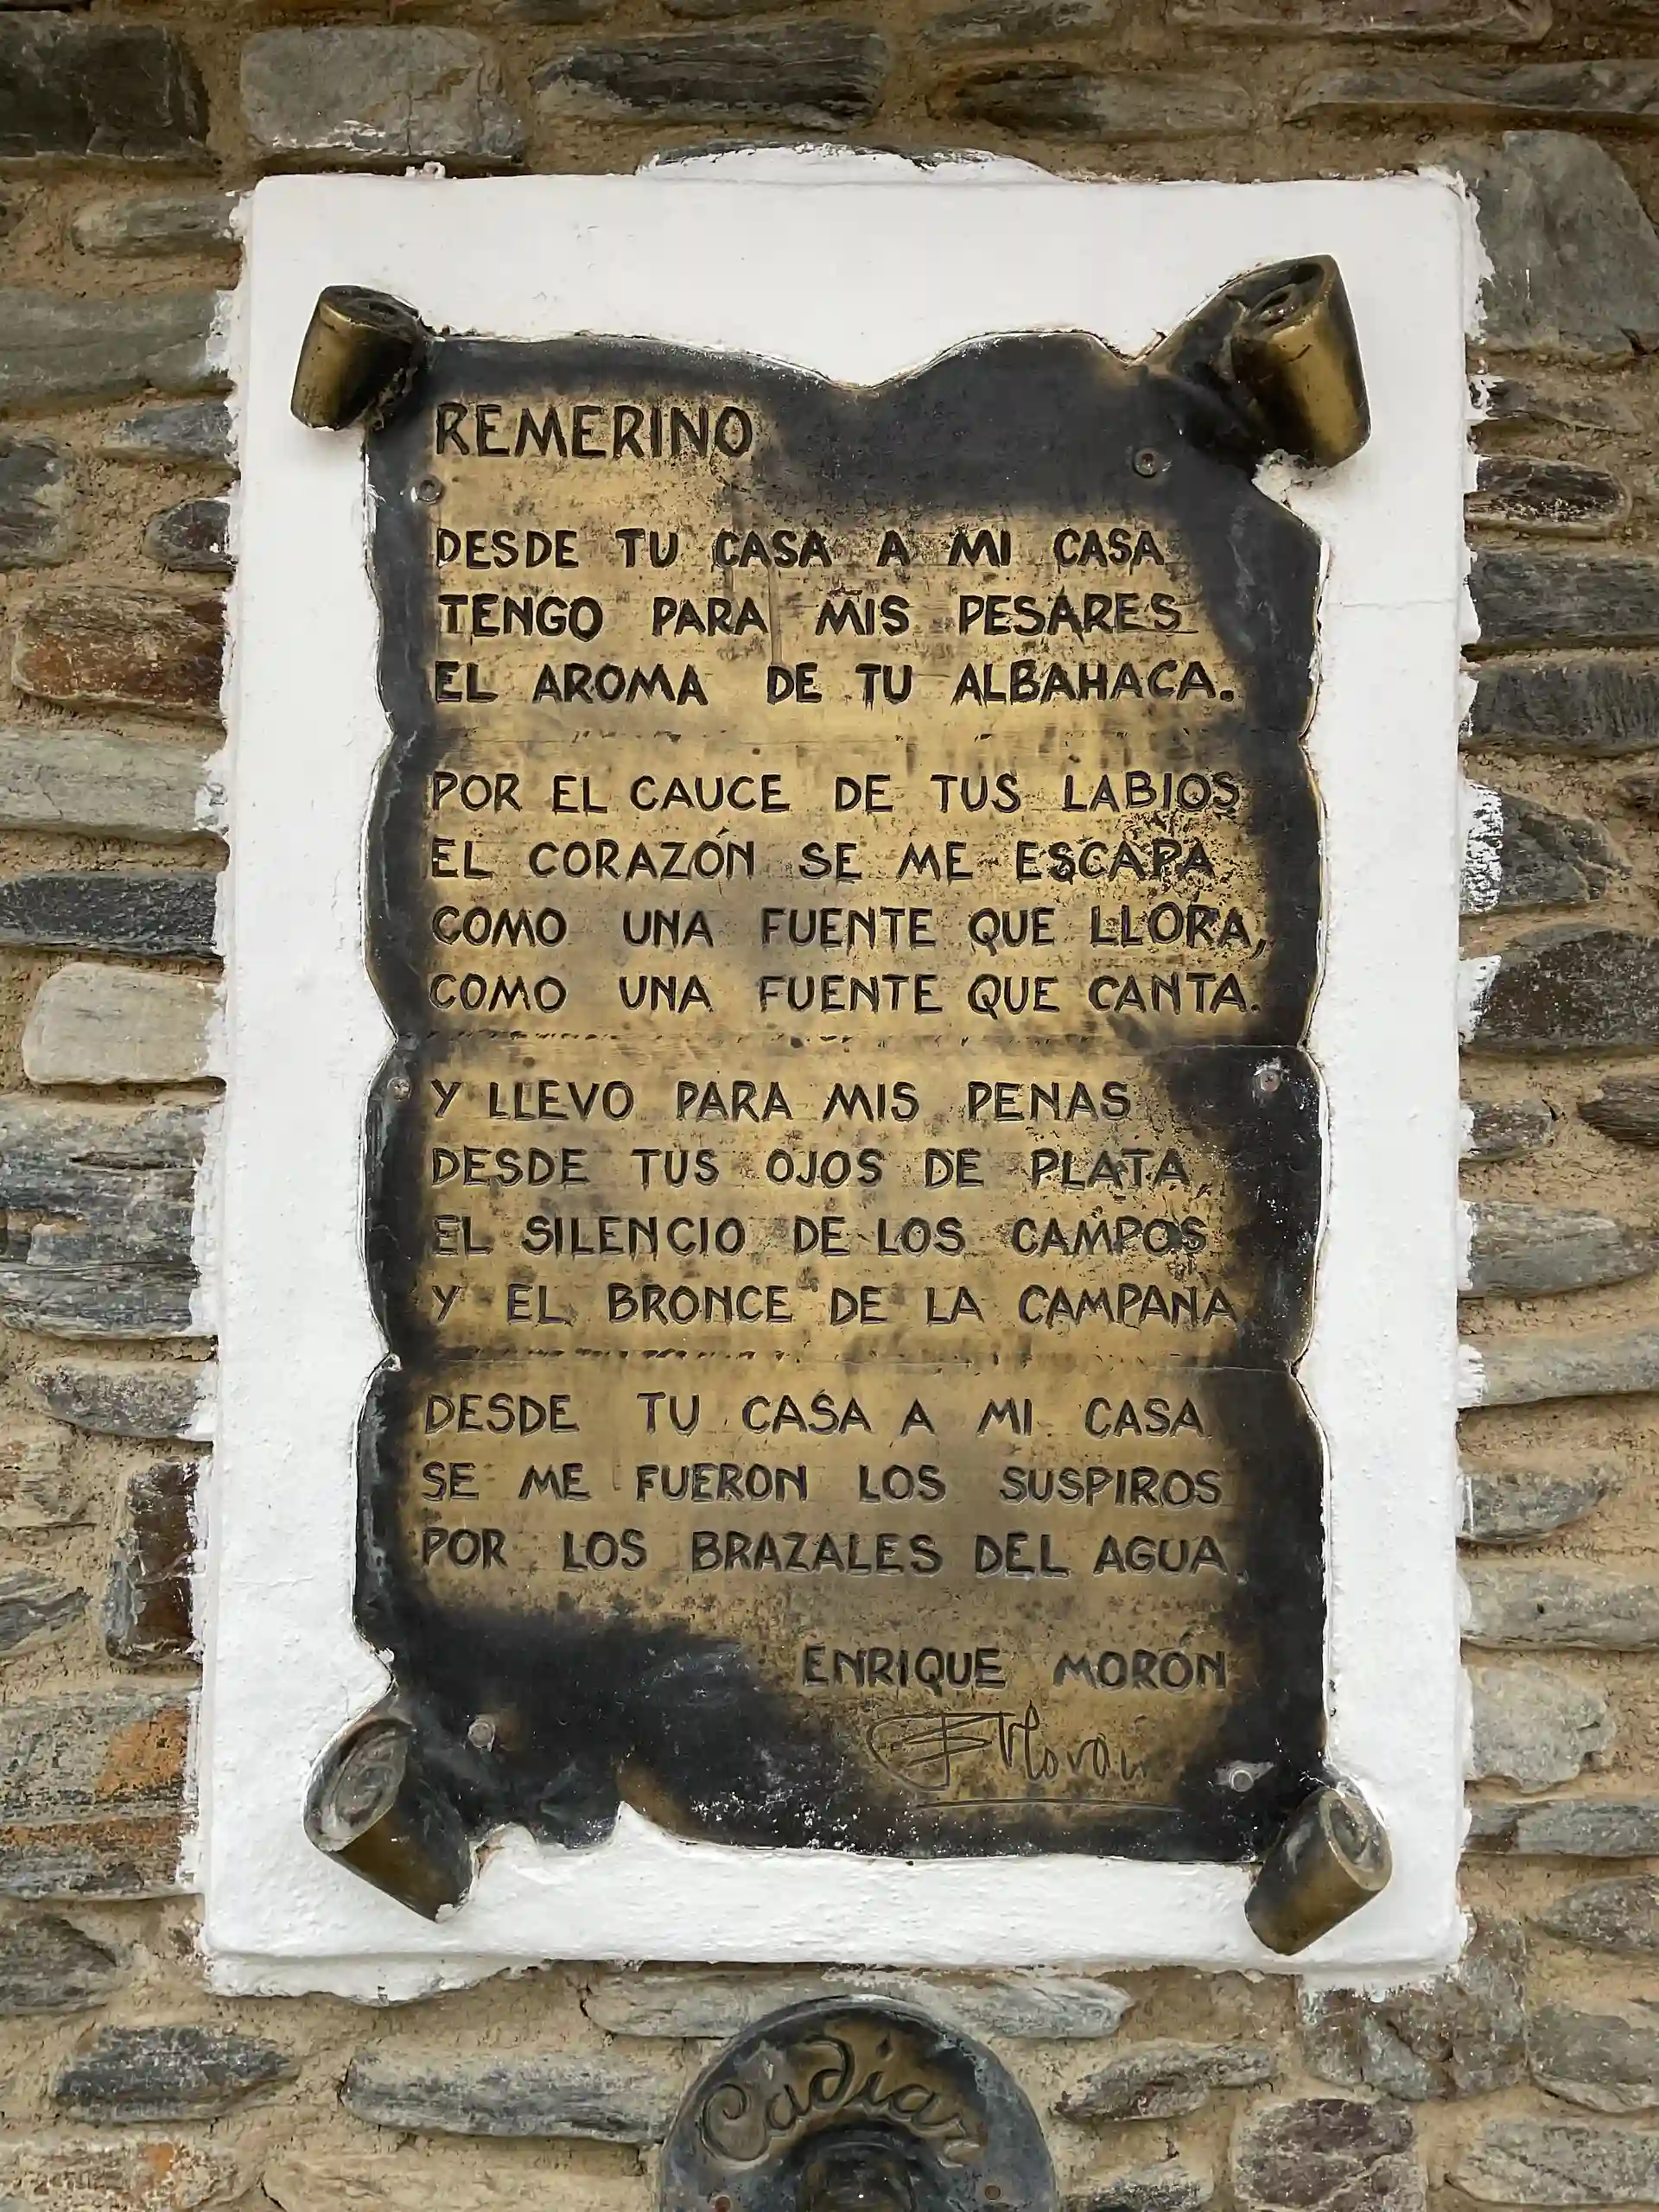 REMERINO
DESDE TU CASA A MI CASA
TENGO PARA MIS PESARES
EL AROMA DE TU ALBAHACA.
POR EL CAUCE DE TUS LABIOS
EL CORAZÓN SE ME ESCAPA
COMO UNA FUENTE QUE LLORA,
COMO UNA FUENTE QUE CANTA.
Y LLEVO PARA MIS PENAS
DESDE TUS OJOS DE PLATA,
EL SILENCIO DE LOS CAMPOS
Y EL BRONCE DE LA CAMPANA
DESDE TU CASA A MI CASA
SE ME FUERON LOS SUSPIROS
POR LOS BRAZALES DEL AGUA.
ENRIQUE MORÓN
EMorón
Cádiar